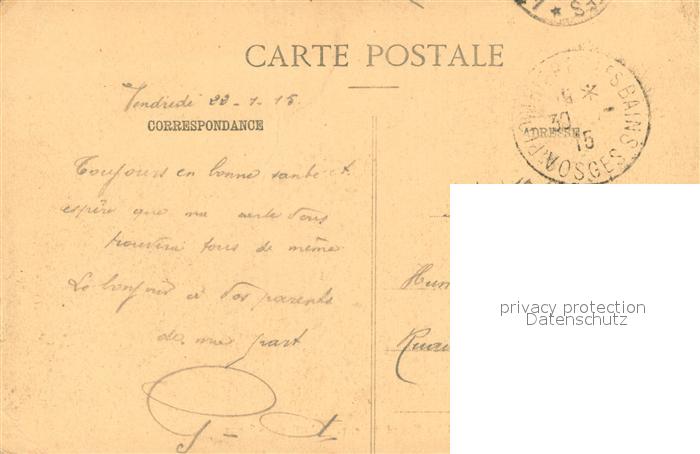 CARTE POSTALE
Vendredi 22-1-15
CORRESPONDANCE
ADRESSE
Toujours en bonne santé et
espère que ma carte vous
trouvera tous de même
Le bonjour à vos parents
de ma part
PLOMBIÈRES LES BAINS
30
15
VOSGES
privacy protection
Datenschutz